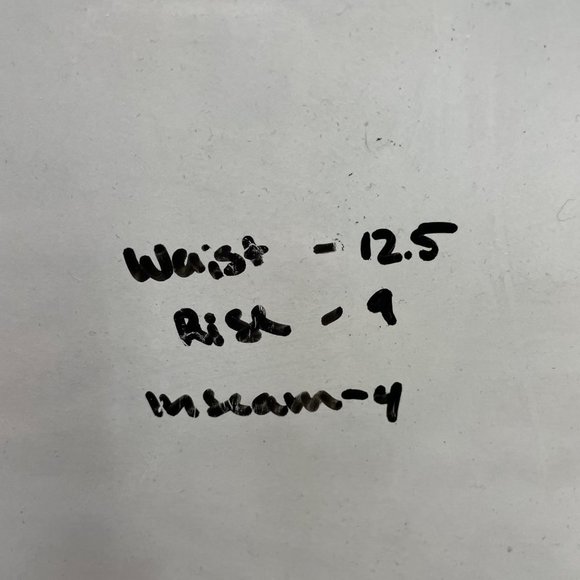 Waist - 12.5
Rise - 9
inseam - 4